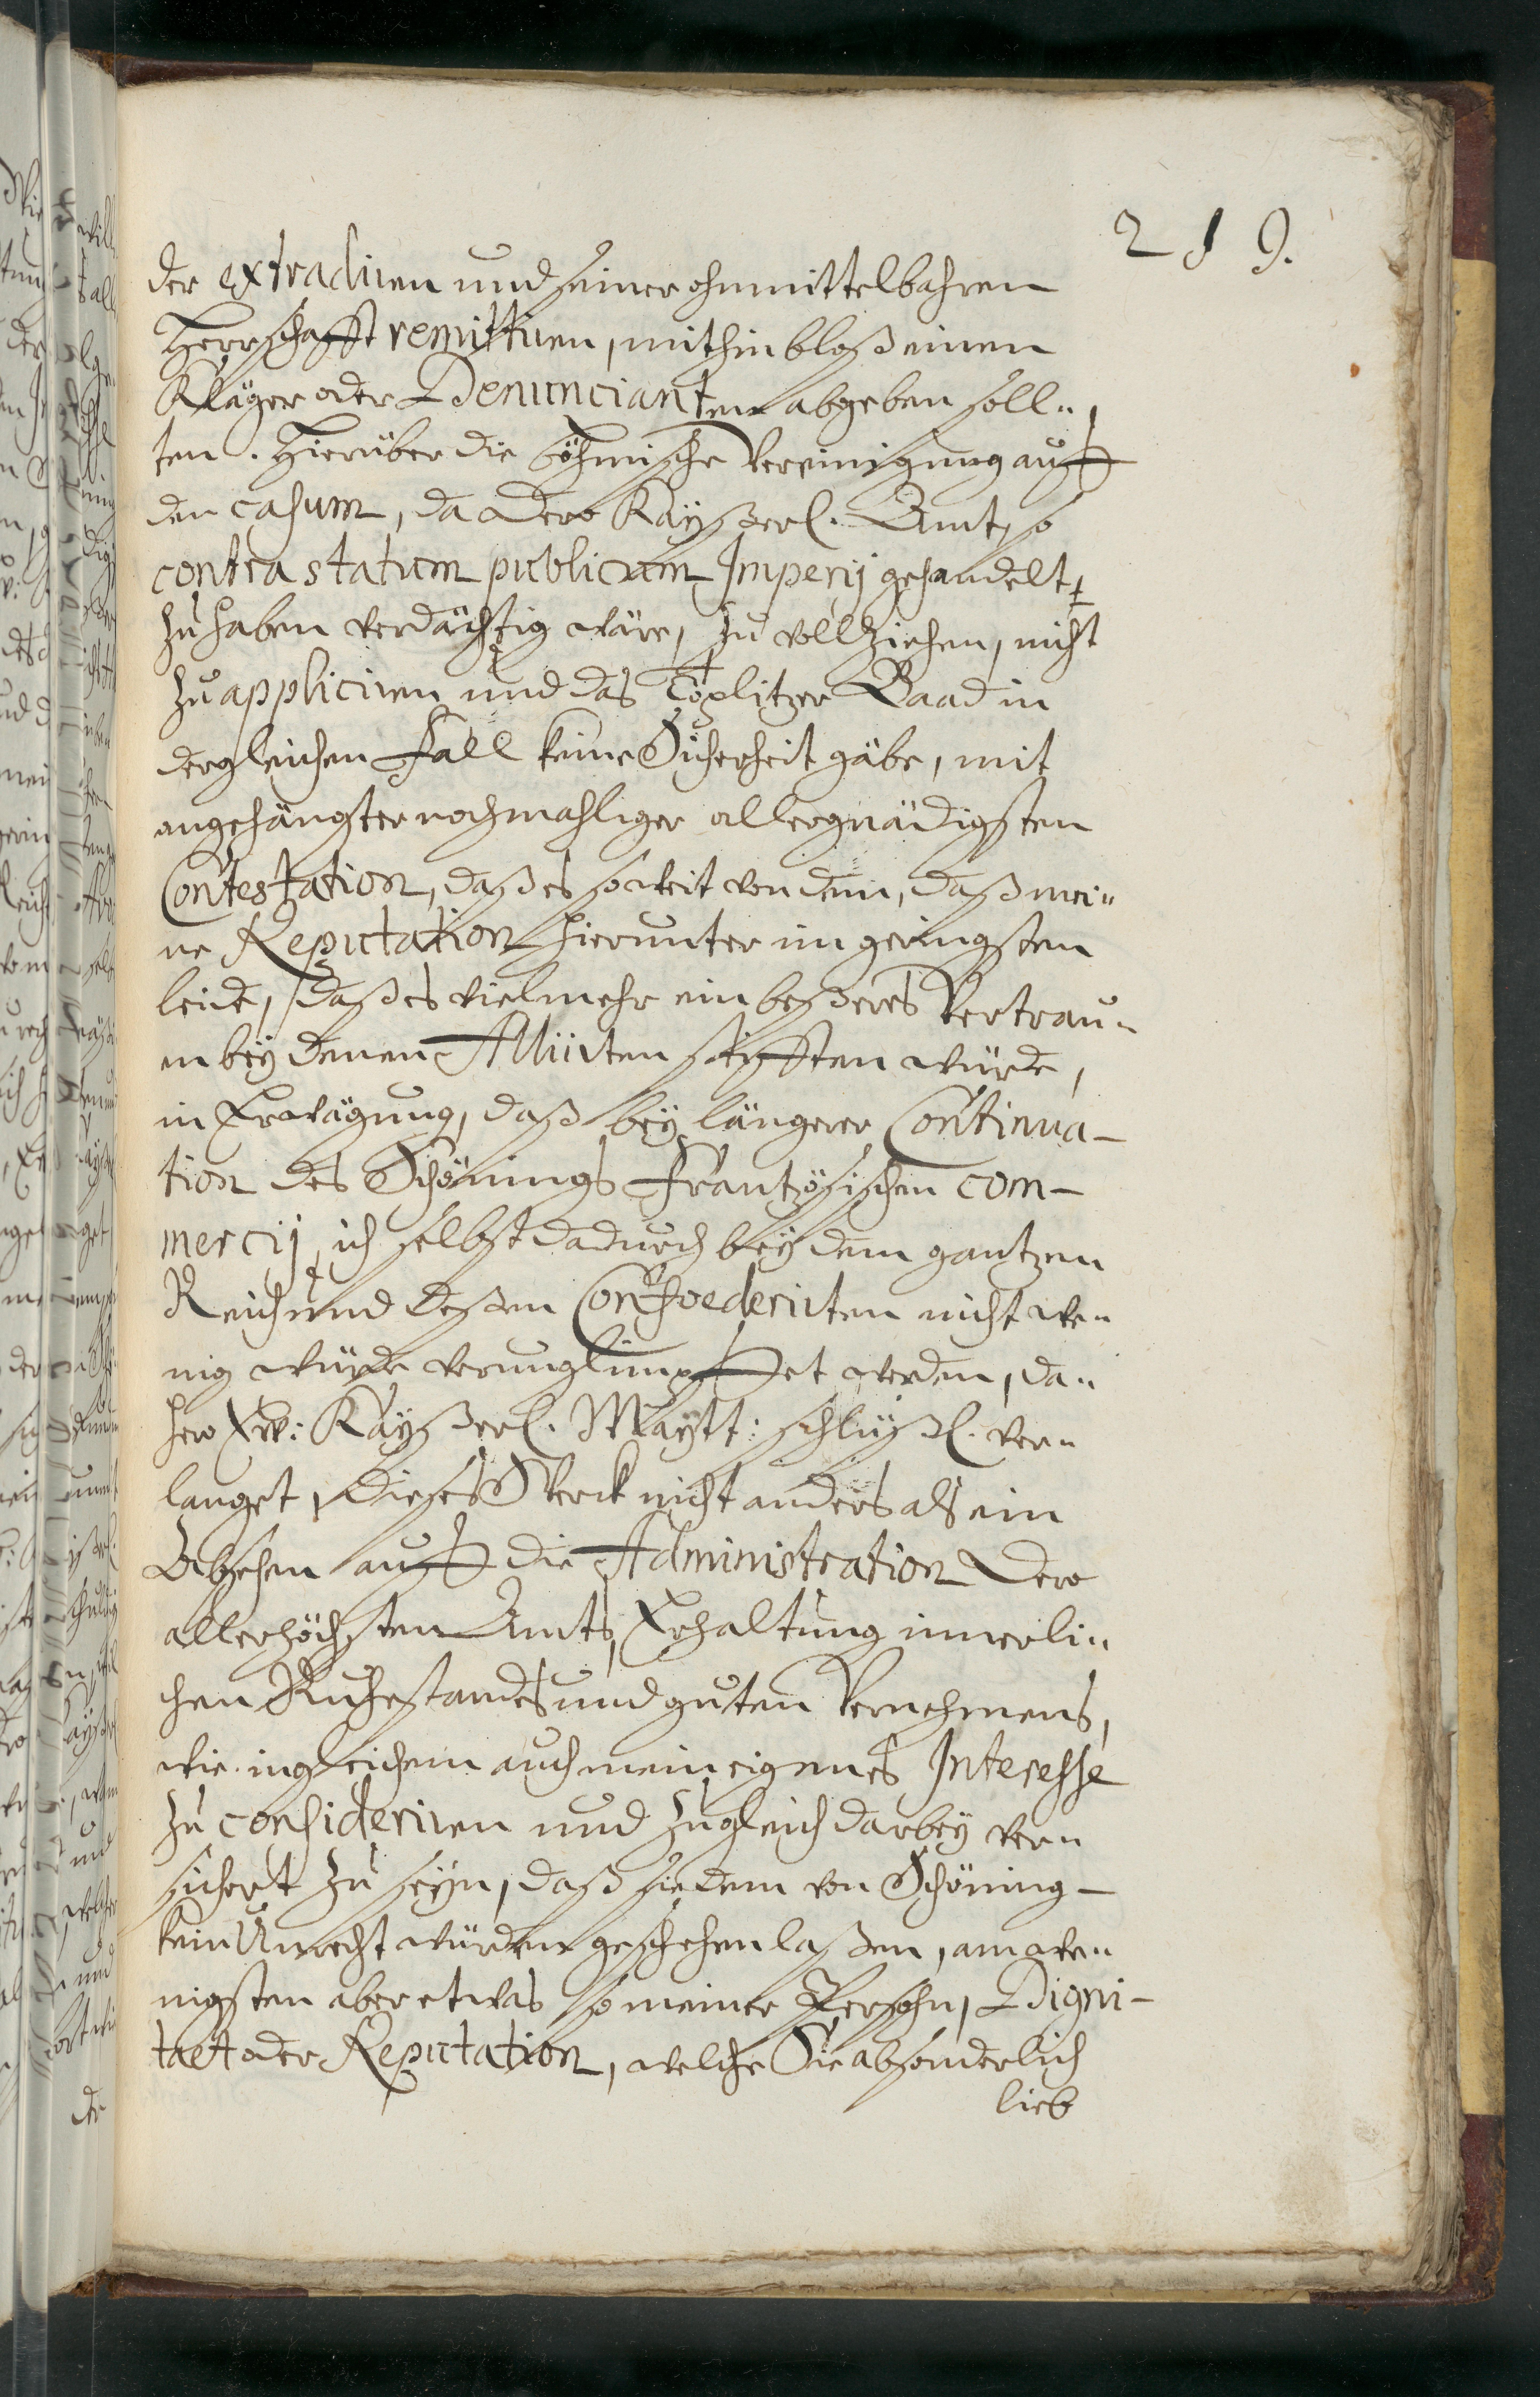 219.
der extradiren und seiner ohnmittelbahren
Herrschafft remittiren, mithin bloß einen
Kläger oder Denuncianten abgeben soll„
ten. Hierüber die böhmische Vereinigung auff
den casum, da Dero Kayßerl. Amt, so
contra statum publicum Imperij gehandelt
zu haben verdächtig wäre, zu vollziehen, nicht
zu appliciren und das Töplitzer Baad in
dergleichen Fall keine Sicherheit gäbe, mit
angehängster nochmahliger allergnädigsten
Contestation, daß es so weit von dem, daß mei„
ne Reputation hierunter im geringsten
leide, daß es vielmehr ein beßeres Vertrau„
en bey denen Alliirten stifften würde,
in Erwägung, daß bey längerer Continua-
tion des Schönings Frantzösischen com-
mercij, ich selbst dadurch bey dem gantzen
Reich und deßen Confoederirten nicht we„
nig würde verunglimpffet werden, da„
hero Ew: Kayßerl. Maytt: schlüßl. ver„
langet, dieses Werck nicht anders als ein
Absehen auff die Administration Dero
allerhöchsten Amts, Erhaltung innerli„
chen Ruhestandes und guten Vernehmens,
wie ingleichem auch mein eigenes Interesse
zu consideriren und zugleich darbey ver„
sichert zu seyn, daß sie dem von Schöning-
kein Unrecht würden geschehen laßen, am we„
nigsten aber etwas so meiner Persohn, Digni-
taet oder Reputation, welche Sie absonderlich
lieb